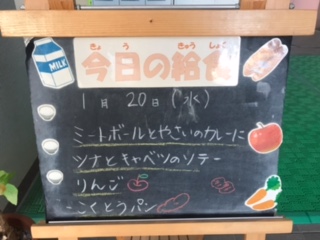 きょう きゅうしょく
今日の給食
MILK
1月 20日 (水)
ミートボールとやさいのカレーに
ツナとキャベツのソテー
りんご
こくとうパン